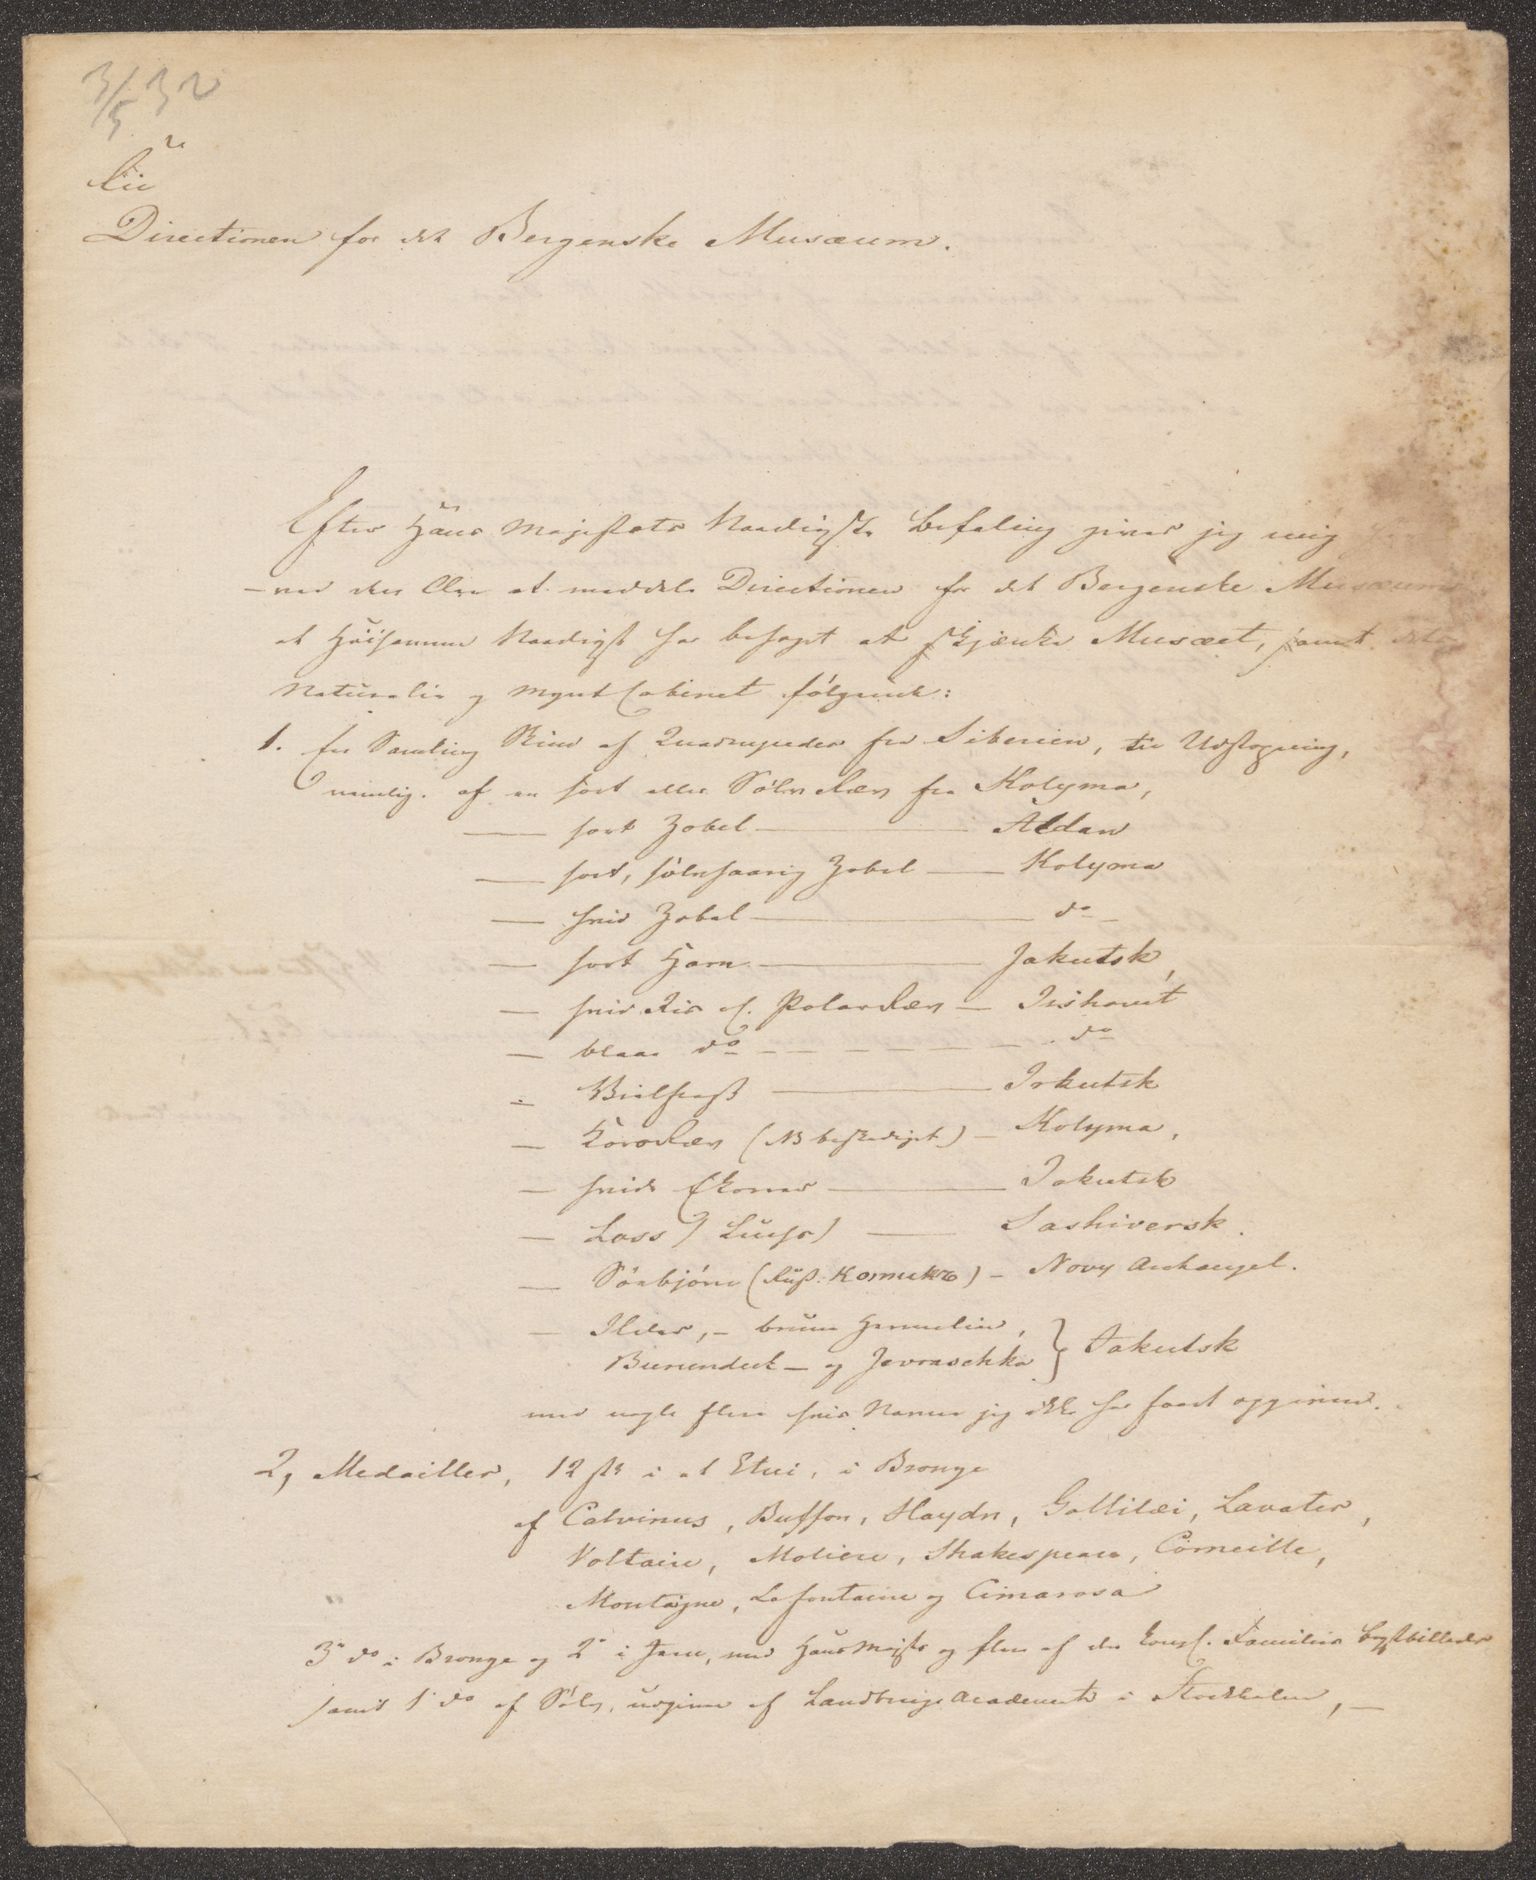 3/5 32
Til
Directionen for det Bergenske Musæum.
Efter Hans Majestæts Naadigste Befaling giver jeg mig
ved den Ære at meddele Directionen for det Bergenske Musæum
at Höisamme Naadigst har behaget at skjænke Musæet, samt dets
Naturalie og Mynt Cabinet følgende:
1. En Samling Skind af Quadrupeder fra Siberien, til Udstopning,
nemlig. af en sort eller Sölv Ræv fra Kolyma,
— sort Zobel — Aldan
— sort, sölvhaarig Zobel — Kolyma
— hvid Zobel — do
— sort Hare — Jakutsk,
— hvid Ris el. Polar Ræv —
— blaa do — do
— Vielfrass — Irkutsk
— Kors Ræv (NB beskadiget) — Kolyma,
— hvide Ekorner — Jakutsk
— Loss (Luchs) — Sashiversk.
— Söebjörn (Russ: ) — Novy Archangel.
— Ilder, — bruun Hermelin,
Burunduk — og Jevraschka } Jakutsk
med nogle flere hvis Navne jeg ikke har faaet opgivne.
2, Medailler, 12 stk i et Etui, i Bronze
af Calvinus, Buffon, Haydn, Gallilæi, Lavater,
Voltaire, Moliere, Shakespeare, Corneille,
Montagne, Lafontaine og Cimarosa
3 do i Bronze og 2 i Jern, med Hans Majsts og flere af den Kongl. Families Brystbilleder
samt 1 do af Sölv, udgiven af Landbrugs Academiet i Stockholm, —